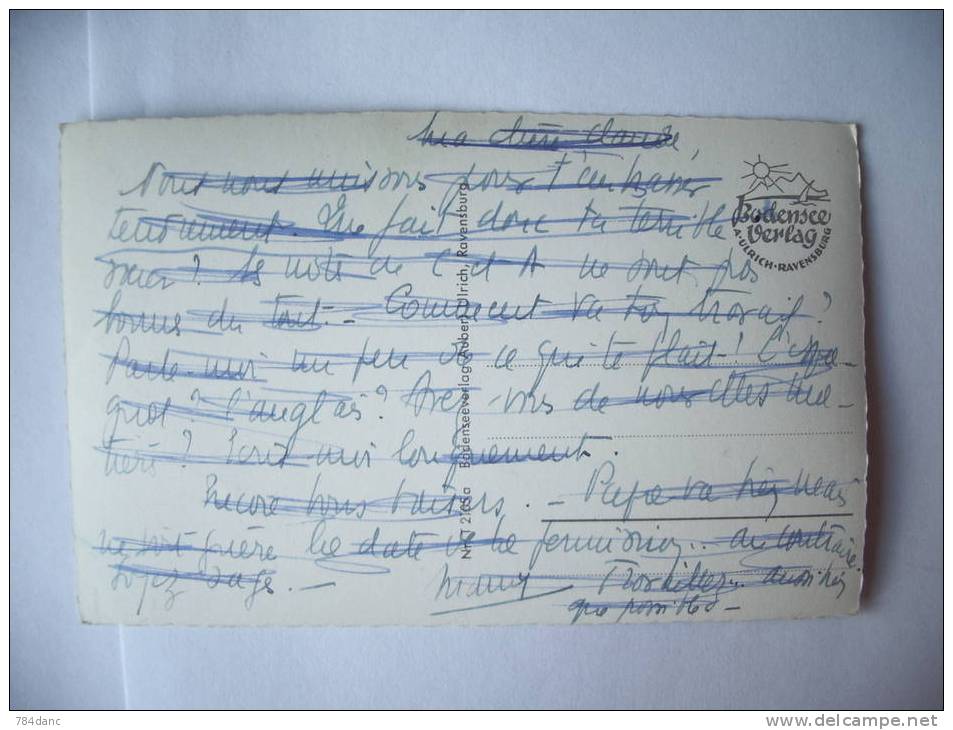 Ma chère Claude,
Nous nous unissons pour t'embrasser
tendrement. Que fait donc ta terrible
sœur? Les notes de C et A ne sont pas
bonnes du tout. - Comment va ton travail?
Parle-moi un peu de ce qui te plait! L'espa-
gnol? l'anglais? Avez-vous de nouvelles ma-
tières? Ecris-moi longuement.
Encore bons baisers. - Papa va très mais
ne sait guère la date de la permission.. au contraire.
Soyez sages. - Mamy Travaillez.. aussi
que possible -
Bodensee
Verlag
A. ULRICH · RAVENSBURG
Bodenseeverlag Aubert Ulrich, Ravensburg
784danc
www.delcampe.net